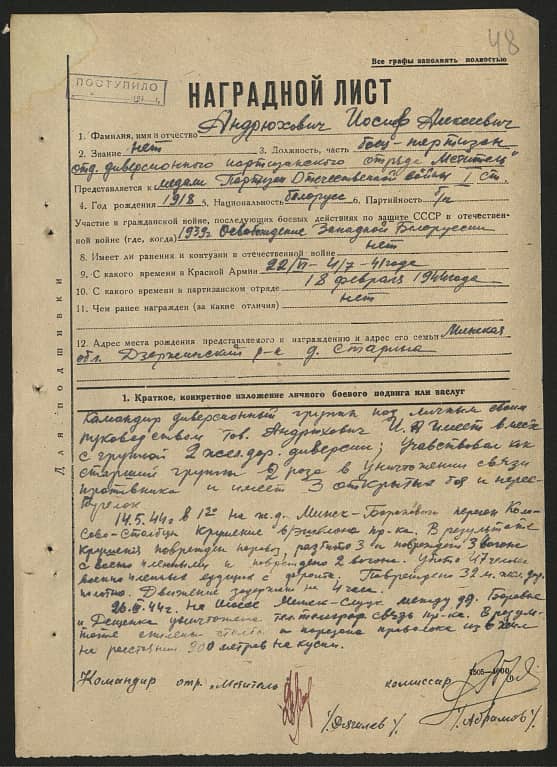 48
Все графы заполнять полностью
ПОСТУПИЛО
НАГРАДНОЙ ЛИСТ
1. Фамилия, имя и отчество Андрюхович Иосиф Алексеевич
2. Звание нет 3. Должность, часть боец-партизан
отд. диверсионного партизанского отряда "Мститель"
Представляется к медали Партизан Отечественной войны I ст.
4. Год рождения 1918 5. Национальность белорус 6. Партийность б/п
Участие в гражданской войне, последующих боевых действиях по защите СССР в отечествен-
ной войне (где, когда) 1939г. Освобождение Западной Белоруссии
8. Имеет ли ранения и контузии в отечественной войне нет
9. С какого времени в Красной Армии 22/VI - 4/7 - 41 года
10. С какого времени в партизанском отряде 18 февраля 1944 года
11. Чем ранее награжден (за какие отличия) нет
12. Адрес места рождения представляемого к награждению и адрес его семьи Минская
обл. Дзержинский р-н д. Старина
Для подшивки
1. Краткое, конкретное изложение личного боевого подвига или заслуг
Командир диверсионной группы под личным своим
руководством тов. Андрюхович И. А имеет вместе
с группой 2 жел.дор. диверсии; Учавствовал как
старший группы 2 раза в уничтожении связи
противника и имеет 3 открытых боя и перес-
трелок
14.5.44г в 12 на ж.д. Минск-Барановичи перегон
Столбцы Крушение в/эшелона пр-ка. В результате
крушения поврежден паровоз, разбито 3 и поврежден 3 вагона
и повреждено 2 вагона. Убито 47
военнопленных едущих с фронта; Повреждено 32 м. жел. дор.
полотно. Движение задержано на 4 часа.
44г. На шоссе Минск-Слуцк между дд.
и уничтожена связь пр-ка. В резуль-
тате спилены столбы и порезана проволока из 6
на расстоянии 900 метров на куски.
Командир отр. "Мститель" комиссар
1305-1000
/Абрамов/